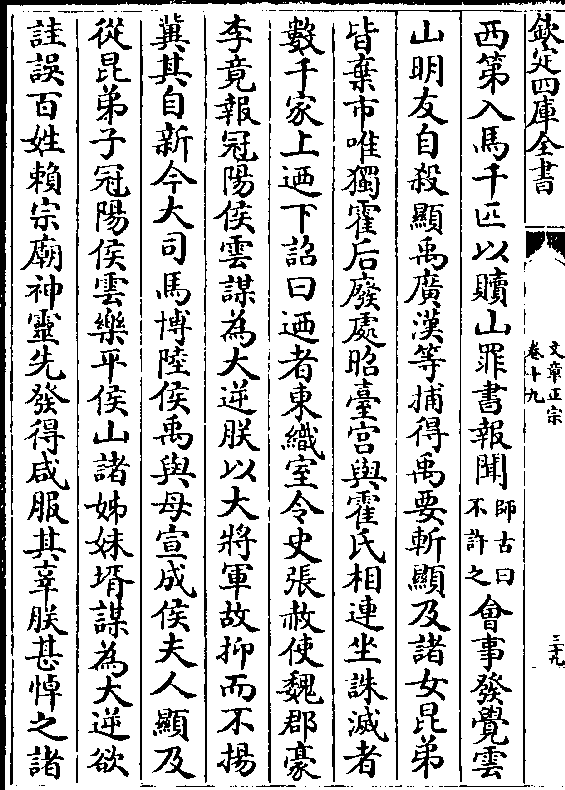 欽定四庫全書
文章正宗
卷十九
三十九
西第入馬千匹以贖山罪書報聞師古曰不許之會事發覺雲
山明友自殺顯禹廣漢等捕得禹要斬顯及諸女昆弟
皆棄市唯獨霍后廢處昭臺宮與霍氏相連坐誅滅者
數千家上迺下詔曰迺者東織室令史張赦使魏郡豪
李竟報冠陽侯雲謀為大逆朕以大將軍故抑而不揚
冀其自新今大司馬博陸侯禹與母宣成侯夫人顯及
從昆弟子冠陽侯雲樂平侯山諸姊妹壻謀為大逆欲
詿誤百姓賴宗廟神靈先發得咸服其辜朕甚悼之諸